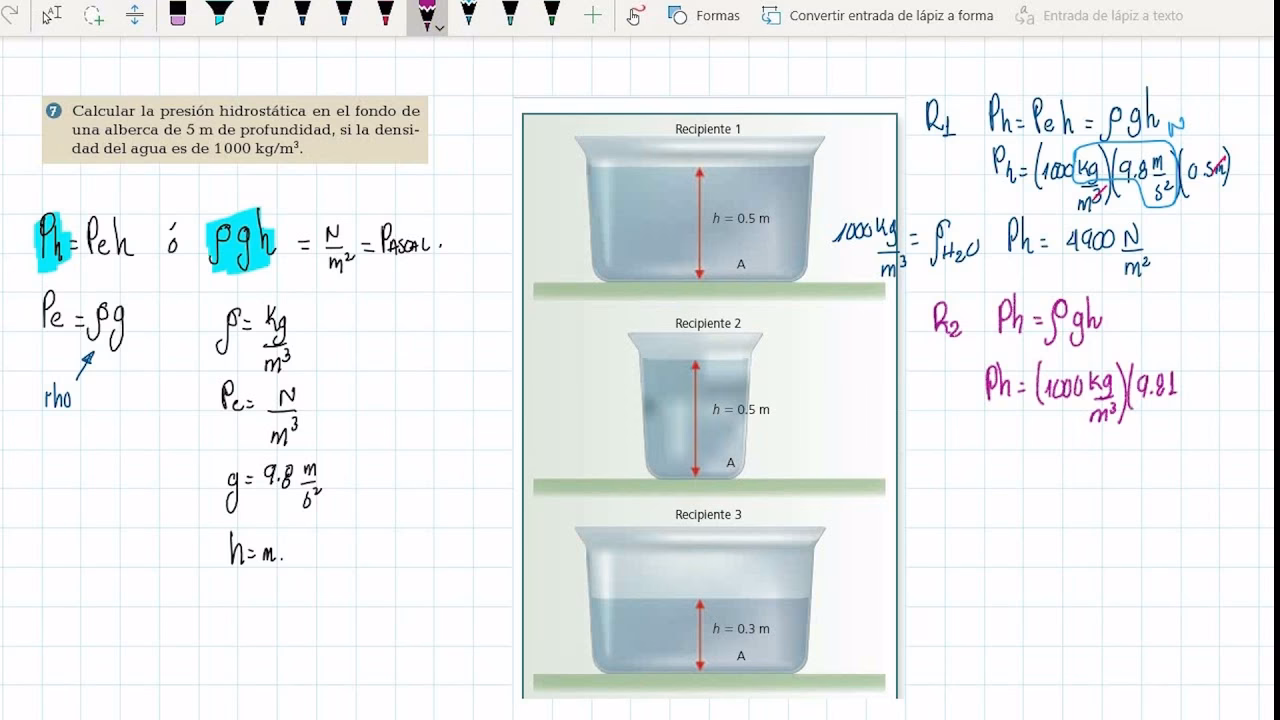 Formas
Convertir entrada de lápiz a forma
Entrada de lápiz a texto
7 Calcular la presión hidrostática en el fondo de
una alberca de 5 m de profundidad, si la densi-
dad del agua es de 1000 kg/m³.
Ph = Peh ó ρgh = N/m² = PASCAL.
Pe = ρg
rho
ρ = kg/m³
Pe = N/m³
g = 9.8 m/s²
h = m.
Recipiente 1
h = 0.5 m
A
Recipiente 2
h = 0.5 m
A
Recipiente 3
h = 0.3 m
A
R1 Ph = Peh = ρgh
N
Ph = (1000 kg/m³)(9.8 m/s²)(0.5m)
1000 kg/m³ = ρH2O
Ph = 4900 N/m²
R2 Ph = ρgh
Ph = (1000 kg/m³)(9.81